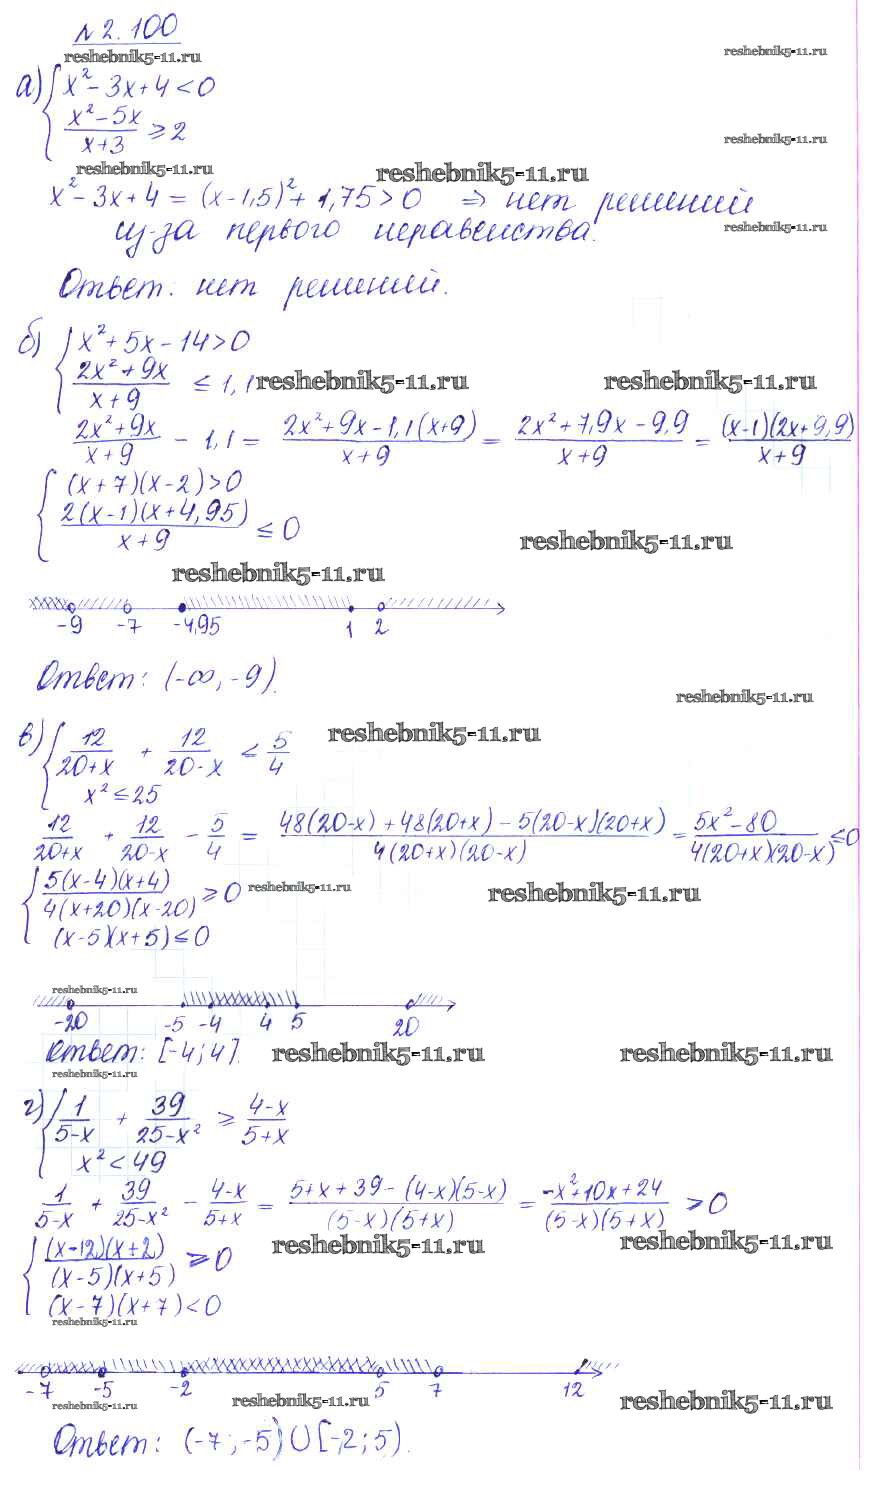 № 2.100
reshebnik5-11.ru
reshebnik5-11.ru
а) { x² - 3x + 4 < 0
(x² - 5x)/(x + 3) ≥ 2
reshebnik5-11.ru
reshebnik5-11.ru
reshebnik5-11.ru
x² - 3x + 4 = (x - 1,5)² + 1,75 > 0 ⇒ нет решений
из-за первого неравенства.
reshebnik5-11.ru
Ответ: нет решений.
б) { x² + 5x - 14 > 0
(2x² + 9x)/(x + 9) ≤ 1,1
reshebnik5-11.ru
reshebnik5-11.ru
(2x² + 9x)/(x + 9) - 1,1 = (2x² + 9x - 1,1(x + 9))/(x + 9) = (2x² + 7,9x - 9,9)/(x + 9) = ((x - 1)(2x + 9,9))/(x + 9)
{ (x + 7)(x - 2) > 0
(2(x - 1)(x + 4,95))/(x + 9) ≤ 0
reshebnik5-11.ru
reshebnik5-11.ru
-9 -7 -4,95 1 2
Ответ: (-∞, -9).
reshebnik5-11.ru
в) { 12/(20 + x) + 12/(20 - x) ≤ 5/4
reshebnik5-11.ru
x² ≤ 25
12/(20 + x) + 12/(20 - x) - 5/4 = (48(20 - x) + 48(20 + x) - 5(20 - x)(20 + x))/(4(20 + x)(20 - x)) = (5x² - 80)/(4(20 + x)(20 - x)) ≤ 0
{ (5(x - 4)(x + 4))/(4(x + 20)(x - 20)) ≥ 0
reshebnik5-11.ru
reshebnik5-11.ru
(x - 5)(x + 5) ≤ 0
reshebnik5-11.ru
-20 -5 -4 4 5 20
Ответ: [-4; 4].
reshebnik5-11.ru
reshebnik5-11.ru
reshebnik5-11.ru
г) { 1/(5 - x) + 39/(25 - x²) ≥ (4 - x)/(5 + x)
x² < 49
1/(5 - x) + 39/(25 - x²) - (4 - x)/(5 + x) = (5 + x + 39 - (4 - x)(5 - x))/((5 - x)(5 + x)) = (-x² + 10x + 24)/((5 - x)(5 + x)) ≥ 0
{ ((x - 12)(x + 2))/((x - 5)(x + 5)) ≥ 0
reshebnik5-11.ru
reshebnik5-11.ru
(x - 7)(x + 7) < 0
reshebnik5-11.ru
-7 -5 -2 5 7 12
reshebnik5-11.ru
reshebnik5-11.ru
reshebnik5-11.ru
Ответ: (-7; -5) ∪ [-2; 5).